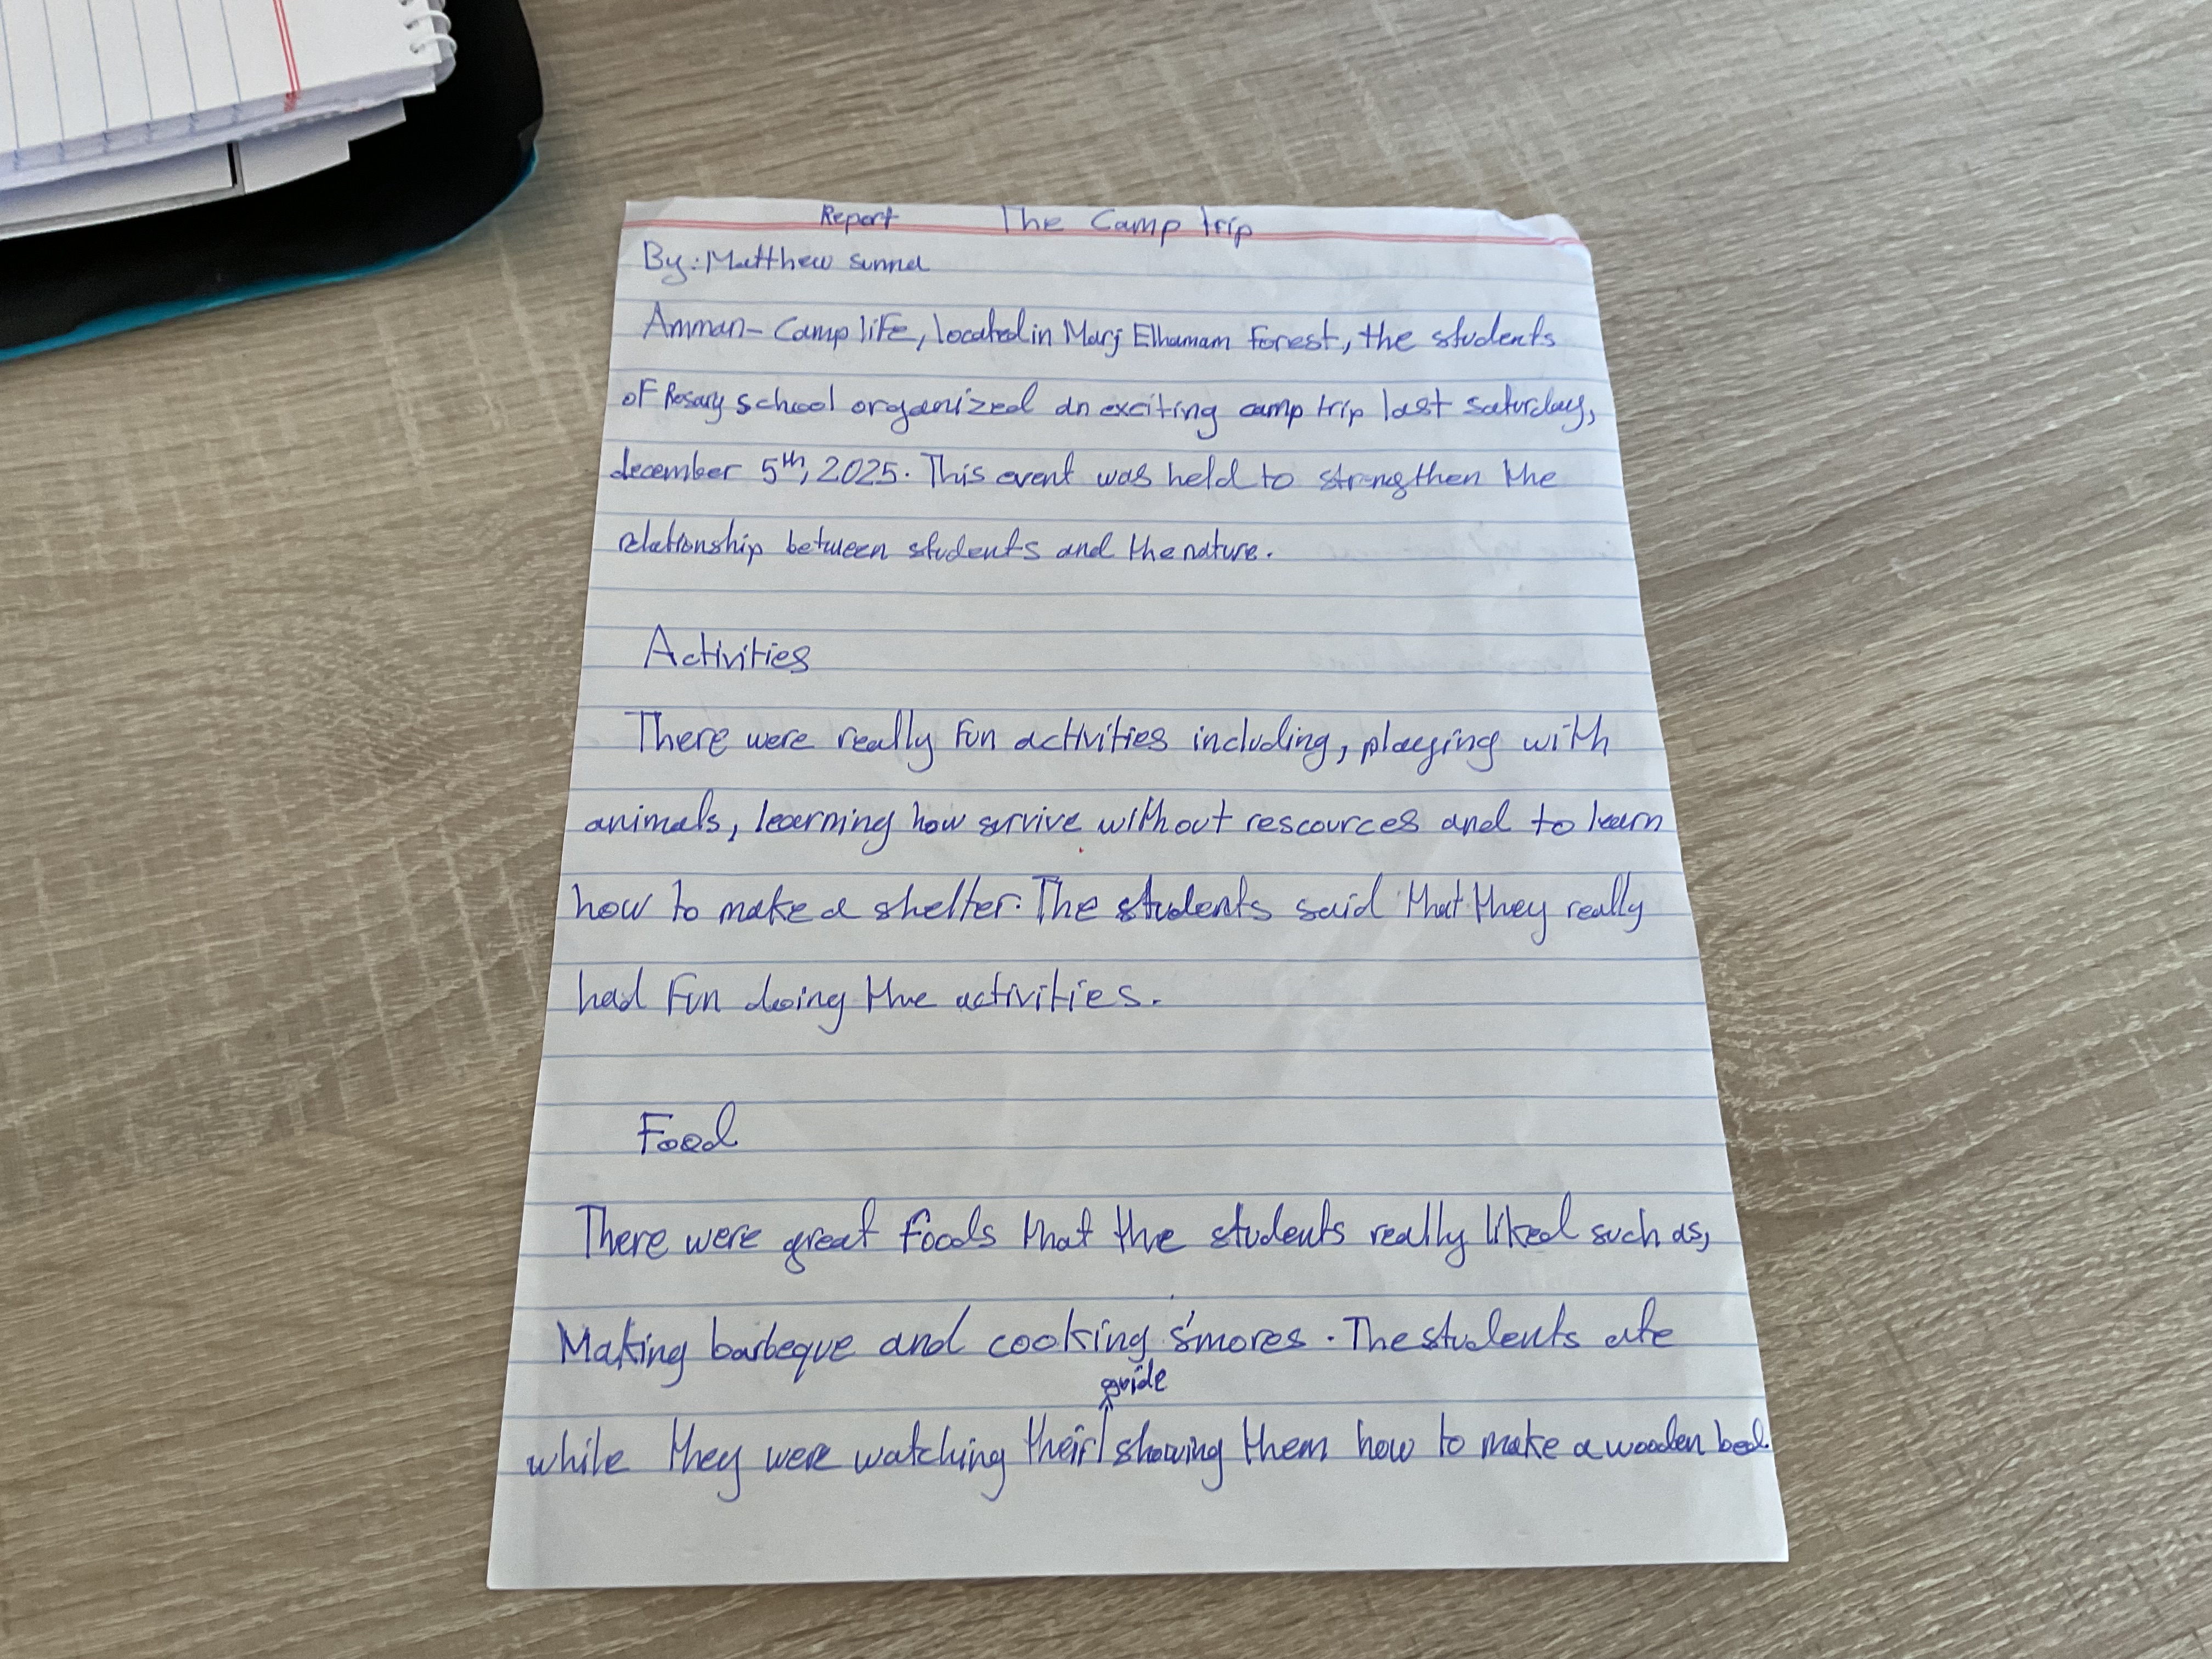 Report The Camp trip
By: Matthew sunna
Amman- Camp life, located in Marj Elhamam forest, the students
of Rosary school organized an exciting camp trip last saturday,
december 5th, 2025. This event was held to strengthen the
relationship between students and the nature.
Activities
There were really fun activities including, playing with
animals, learning how survive without rescources and to learn
how to make a shelter. The students said that they really
had fun doing the activities.
Food
There were great foods that the students really liked such as,
Making barbeque and cooking s'mores. The students ate
guide
while they were watching their showing them how to make a wooden bed.